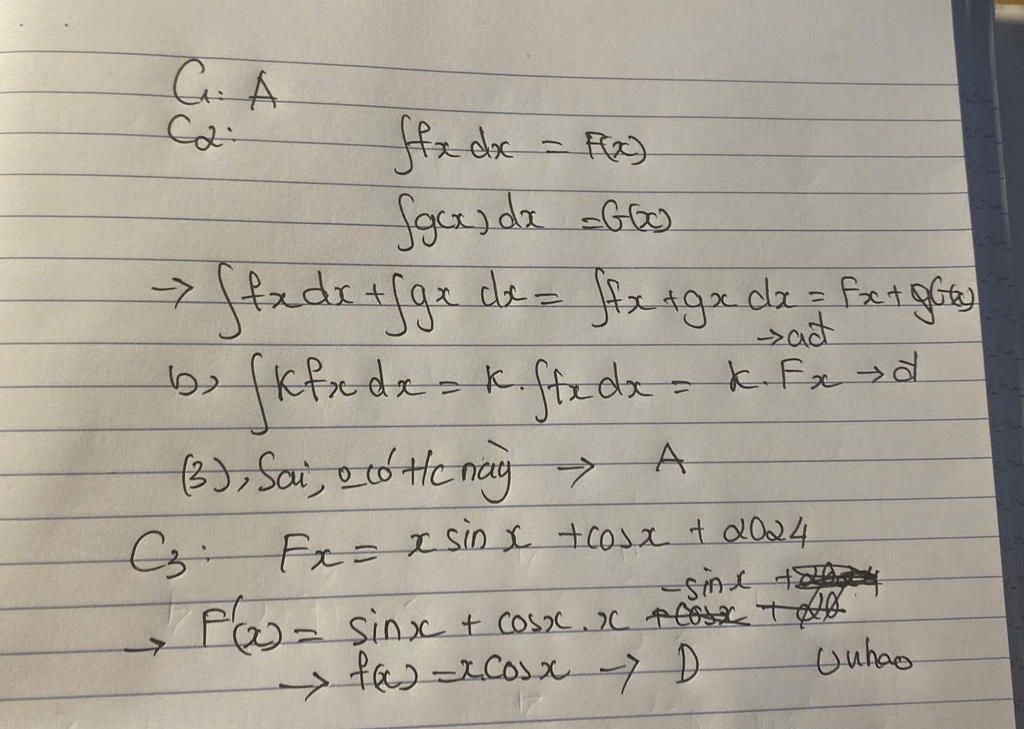 C1: A
C2: ∫fx dx = F(x)
∫g(x) dx = G(x)
→ ∫fx dx + ∫gx dx = ∫fx + gx dx = Fx + gG(x)
→ ad
b, ∫Kfx dx = K.∫fx dx = k.Fx → đ
(3), Sai, o có t/c này → A
C3: Fx = x sin x + cosx + 2024
-sinx
→ F'(x) = sinx + cosx.x +cosx +
→ f(x) = xcosx → D